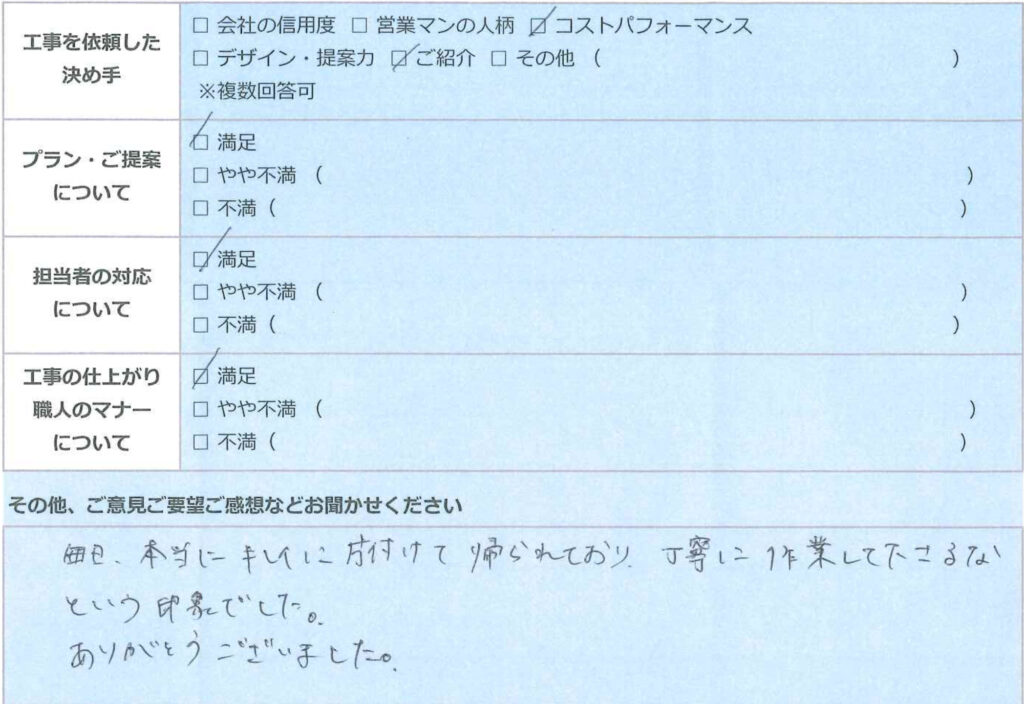 工事を依頼した
決め手
□ 会社の信用度 □ 営業マンの人柄 ☑ コストパフォーマンス
□ デザイン・提案力 ☑ ご紹介 □ その他（ ）
※複数回答可
プラン・ご提案
について
☑ 満足
□ やや不満（ ）
□ 不満（ ）
担当者の対応
について
☑ 満足
□ やや不満（ ）
□ 不満（ ）
工事の仕上がり
職人のマナー
について
☑ 満足
□ やや不満（ ）
□ 不満（ ）
その他、ご意見ご要望ご感想などお聞かせください
毎日、本当にキレイに片付けて帰られており、丁寧に作業して下さるな
という印象でした。
ありがとうございました。